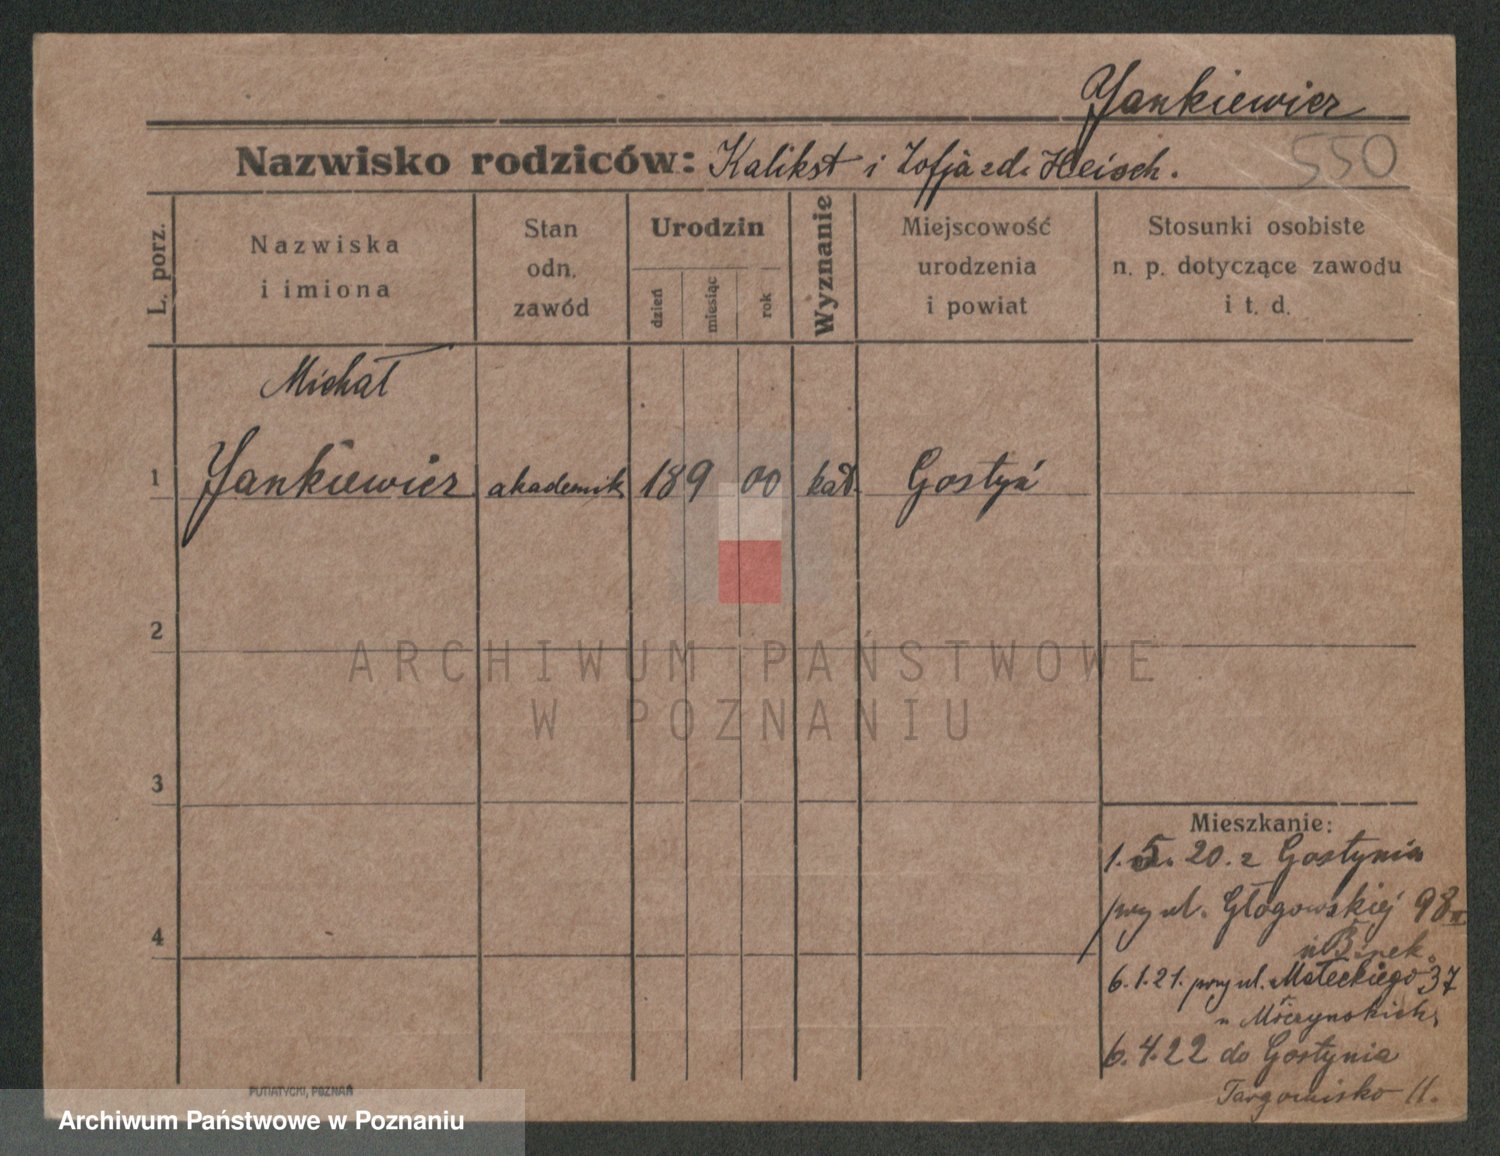 Yankiewicz
Nazwisko rodziców: Kalikst i Zofja zd. Heisch.
550
L. porz.
Nazwiska
i imiona
Stan
odn.
zawód
Urodzin
dzień
miesiąc
rok
Wyznanie
Miejscowość
urodzenia
i powiat
Stosunki osobiste
n. p. dotyczące zawodu
i t. d.
Michał
1 Yankiewicz akademik 18 9 00 kat. Gostyń
2
ARCHIWUM PAŃSTWOWE
W POZNANIU
3
Mieszkanie:
1. 5. 20. z Gostynia
przy ul. Głogowskiej 98 II
4
6. 1. 21. przy ul. Małeckiego 37
u
6. 4. 22 do Gostynia
Targowisko 11.
PUTIATYCKI, POZNAŃ
Archiwum Państwowe w Poznaniu